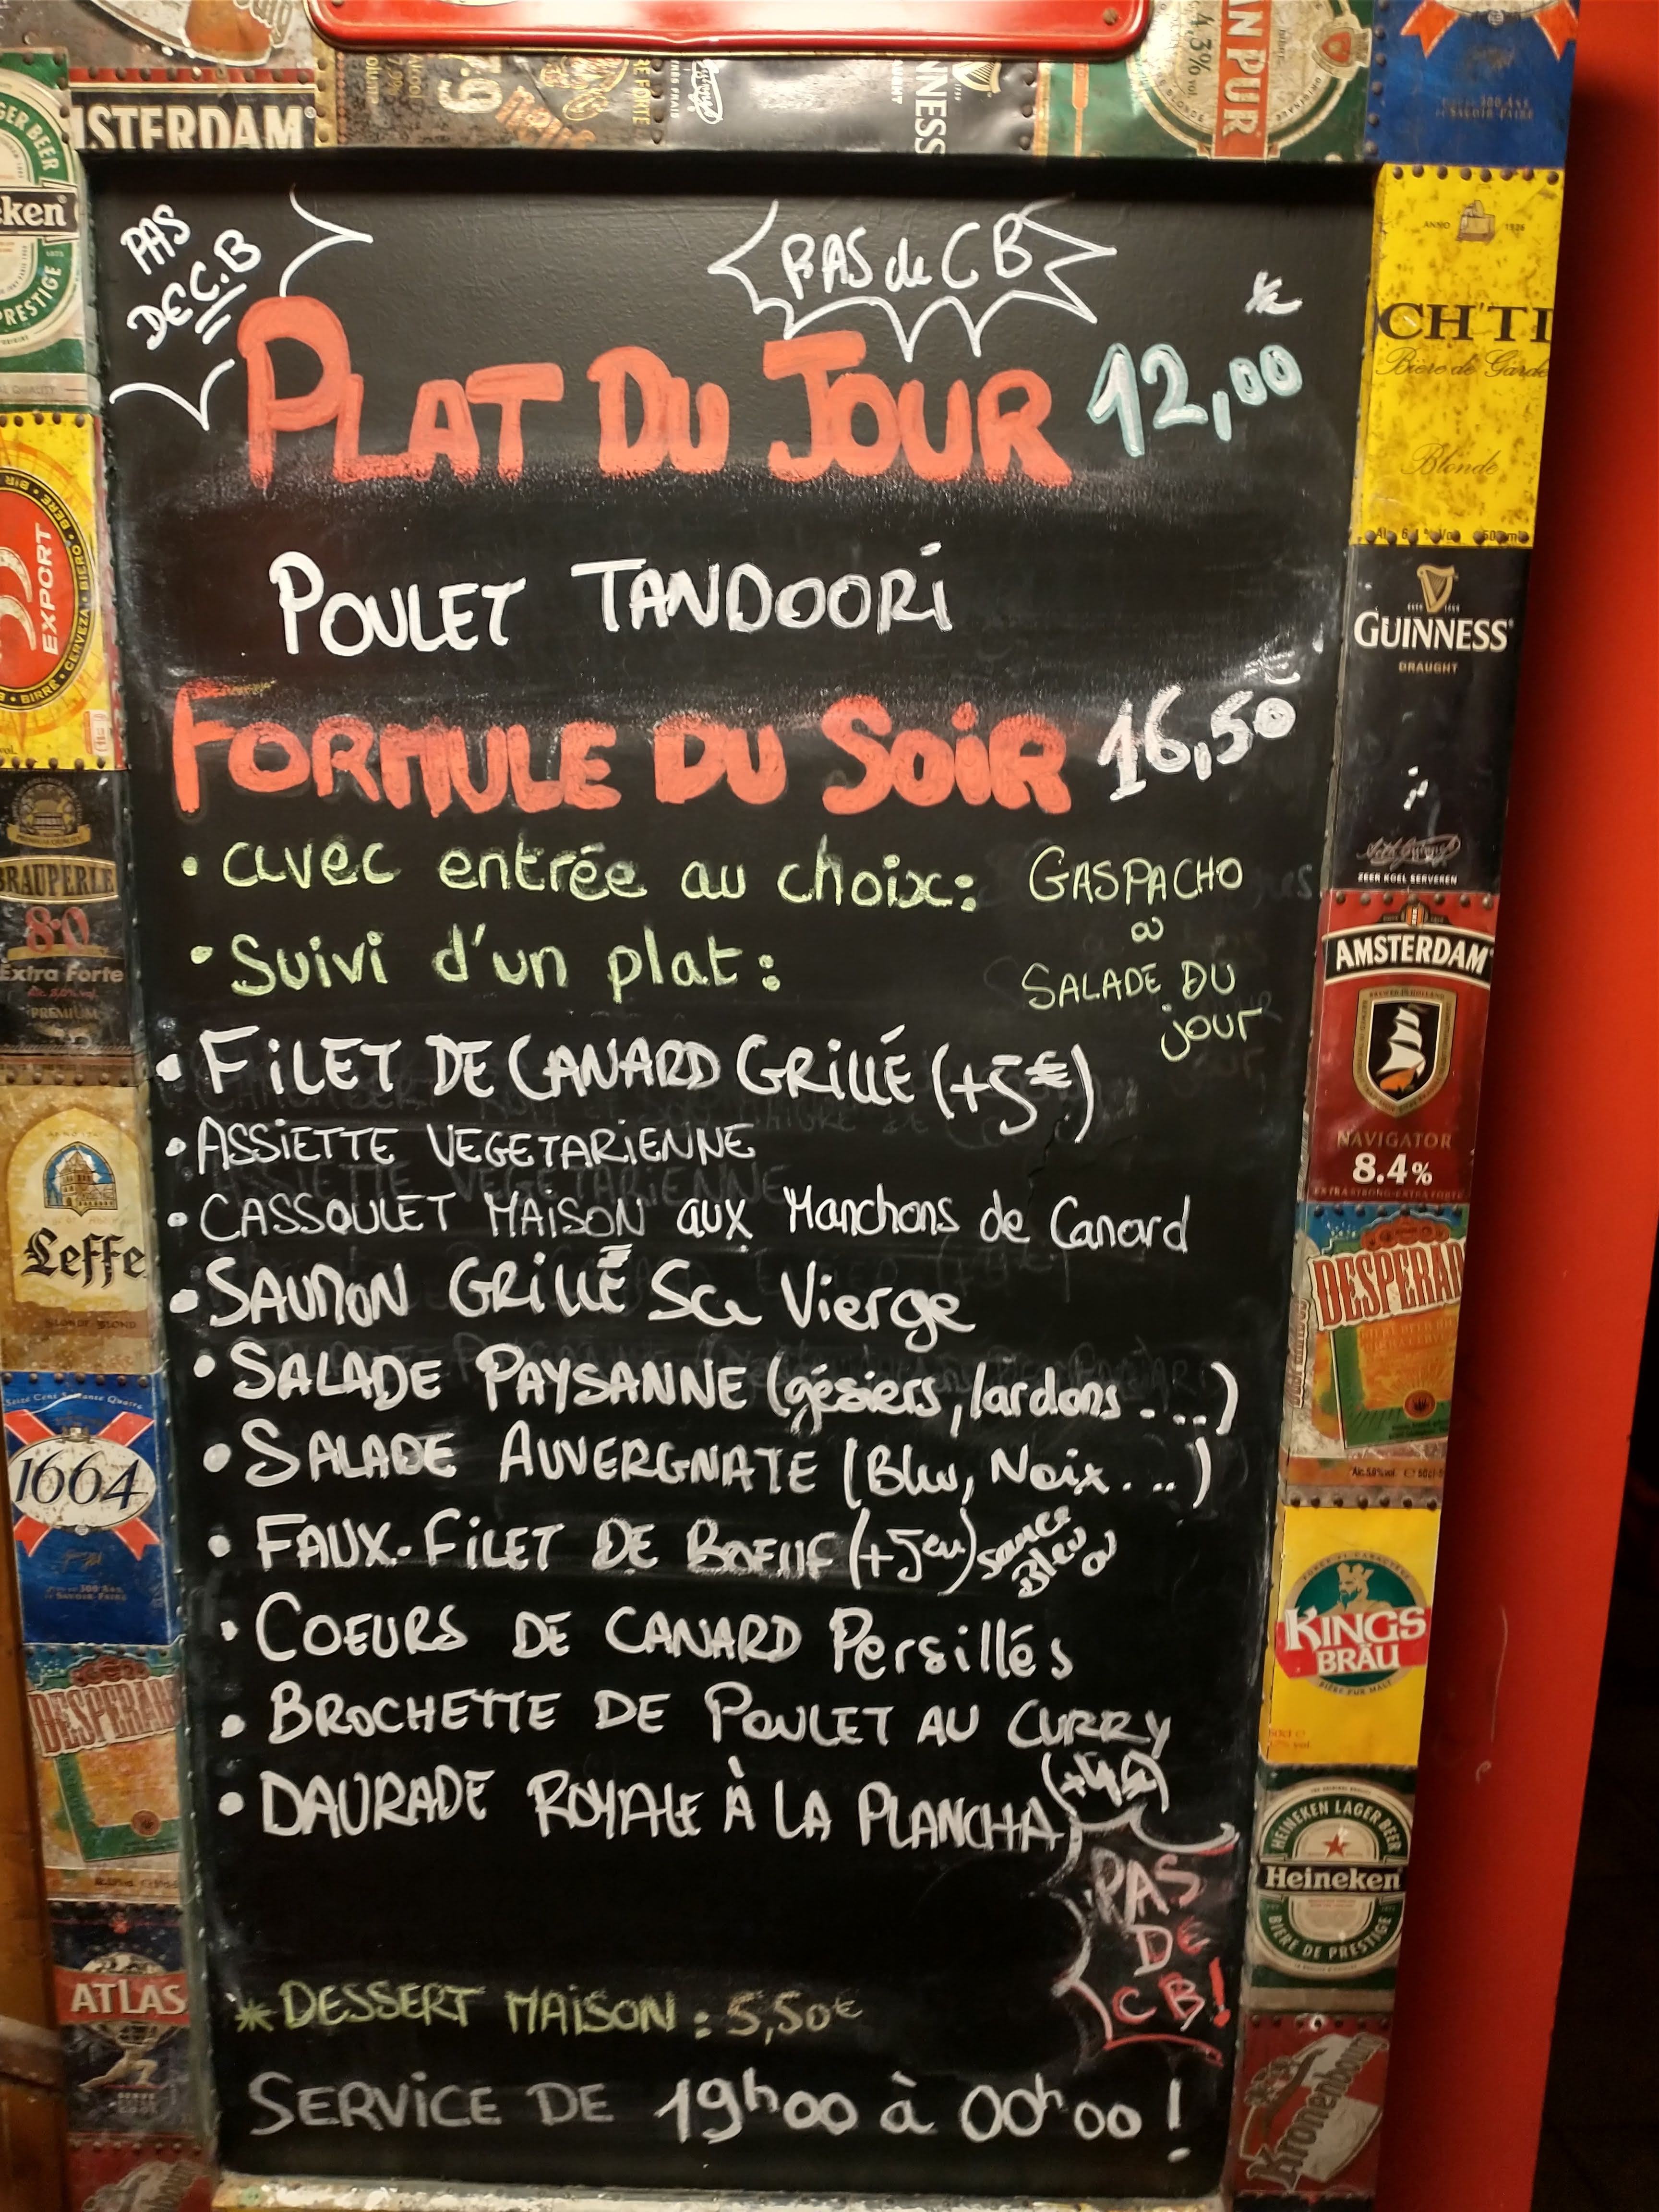 AMSTERDAM
GUINNESS
4,3% vol
PAS
DE C.B
PAS de CB
PLAT DU JOUR 12,00 €
POULET TANDOORi
FORMULE DU SOiR 16,50€
• avec entrée au choix: GASPACHO
ou
• Suivi d'un plat: SALADE DU
jour
• FiLET DE CANARD GRiLLÉ (+5€)
• ASSiETTE VEGETARiENNE
• CASSOULET MAiSON aux Manchons de Canard
• SAUMON GRiLLÉ Sce Vierge
• SALADE PAYSANNE (gésiers, lardons ....)
• SALADE AUVERGNATE (Bleu, Noix ...)
• FAUX-FiLET DE BOEUF (+5eu) sauce
Bleu ou
• COEURS DE CANARD Persillés
• BROCHETTE DE POULET AU CURRY
• DAURADE ROYALE À LA PLANCHA (+4€)
PAS
DE
CB!
* DESSERT MAiSON : 5,50€
SERViCE DE 19h00 à 00h00 !
Heineken
PRESTIGE
EXPORT
BRAUPERLE
8.0
Extra Forte
PREMIUM
Leffe
1664
DESPERAD
ATLAS
ANNO 1926
CH'TI
Bière de Garde
Blonde
GUINNESS
DRAUGHT
ZEER KOEL SERVEREN
AMSTERDAM
NAVIGATOR
8.4%
EXTRA STRONG-EXTRA FORTE
DESPERAD
KINGS
BRÄU
HEINEKEN LAGER BEER
Heineken
BIERE DE PRESTIGE
Kronenbourg